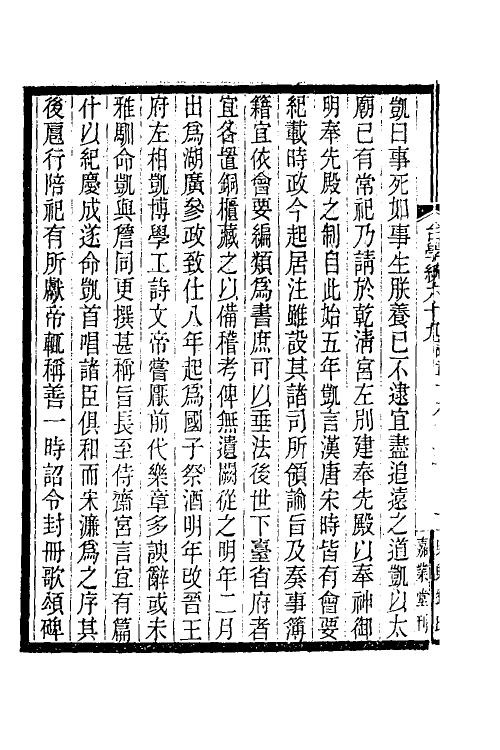 凱曰事死如事生朕養已不逮宜盡追遠之道凱以太
廟已有常祀乃請於乾淸宮左別建奉先殿以奉神御
明奉先殿之制自此始五年凱言漢唐宋時皆有會要
紀載時政今起居注雖設其諸司所領諭旨及奏事簿
籍宜依會要編類爲書庶可以垂法後世下臺省府者
宜各置銅櫃藏之以備稽考俾無遺闕從之明年二月
出爲湖廣參政致仕八年起爲國子祭酒明年改晉王
府左相凱博學工詩文帝嘗厭前代樂章多諛辭或未
雅馴命凱與詹同更撰甚稱旨長至侍齋宮言宜有篇
什以紀慶成遂命凱首唱諸臣俱和而宋濂爲之序其
後扈行陪祀有所獻帝輒稱善一時詔令封冊歌頌碑
台學統六十九
嘉業堂刊